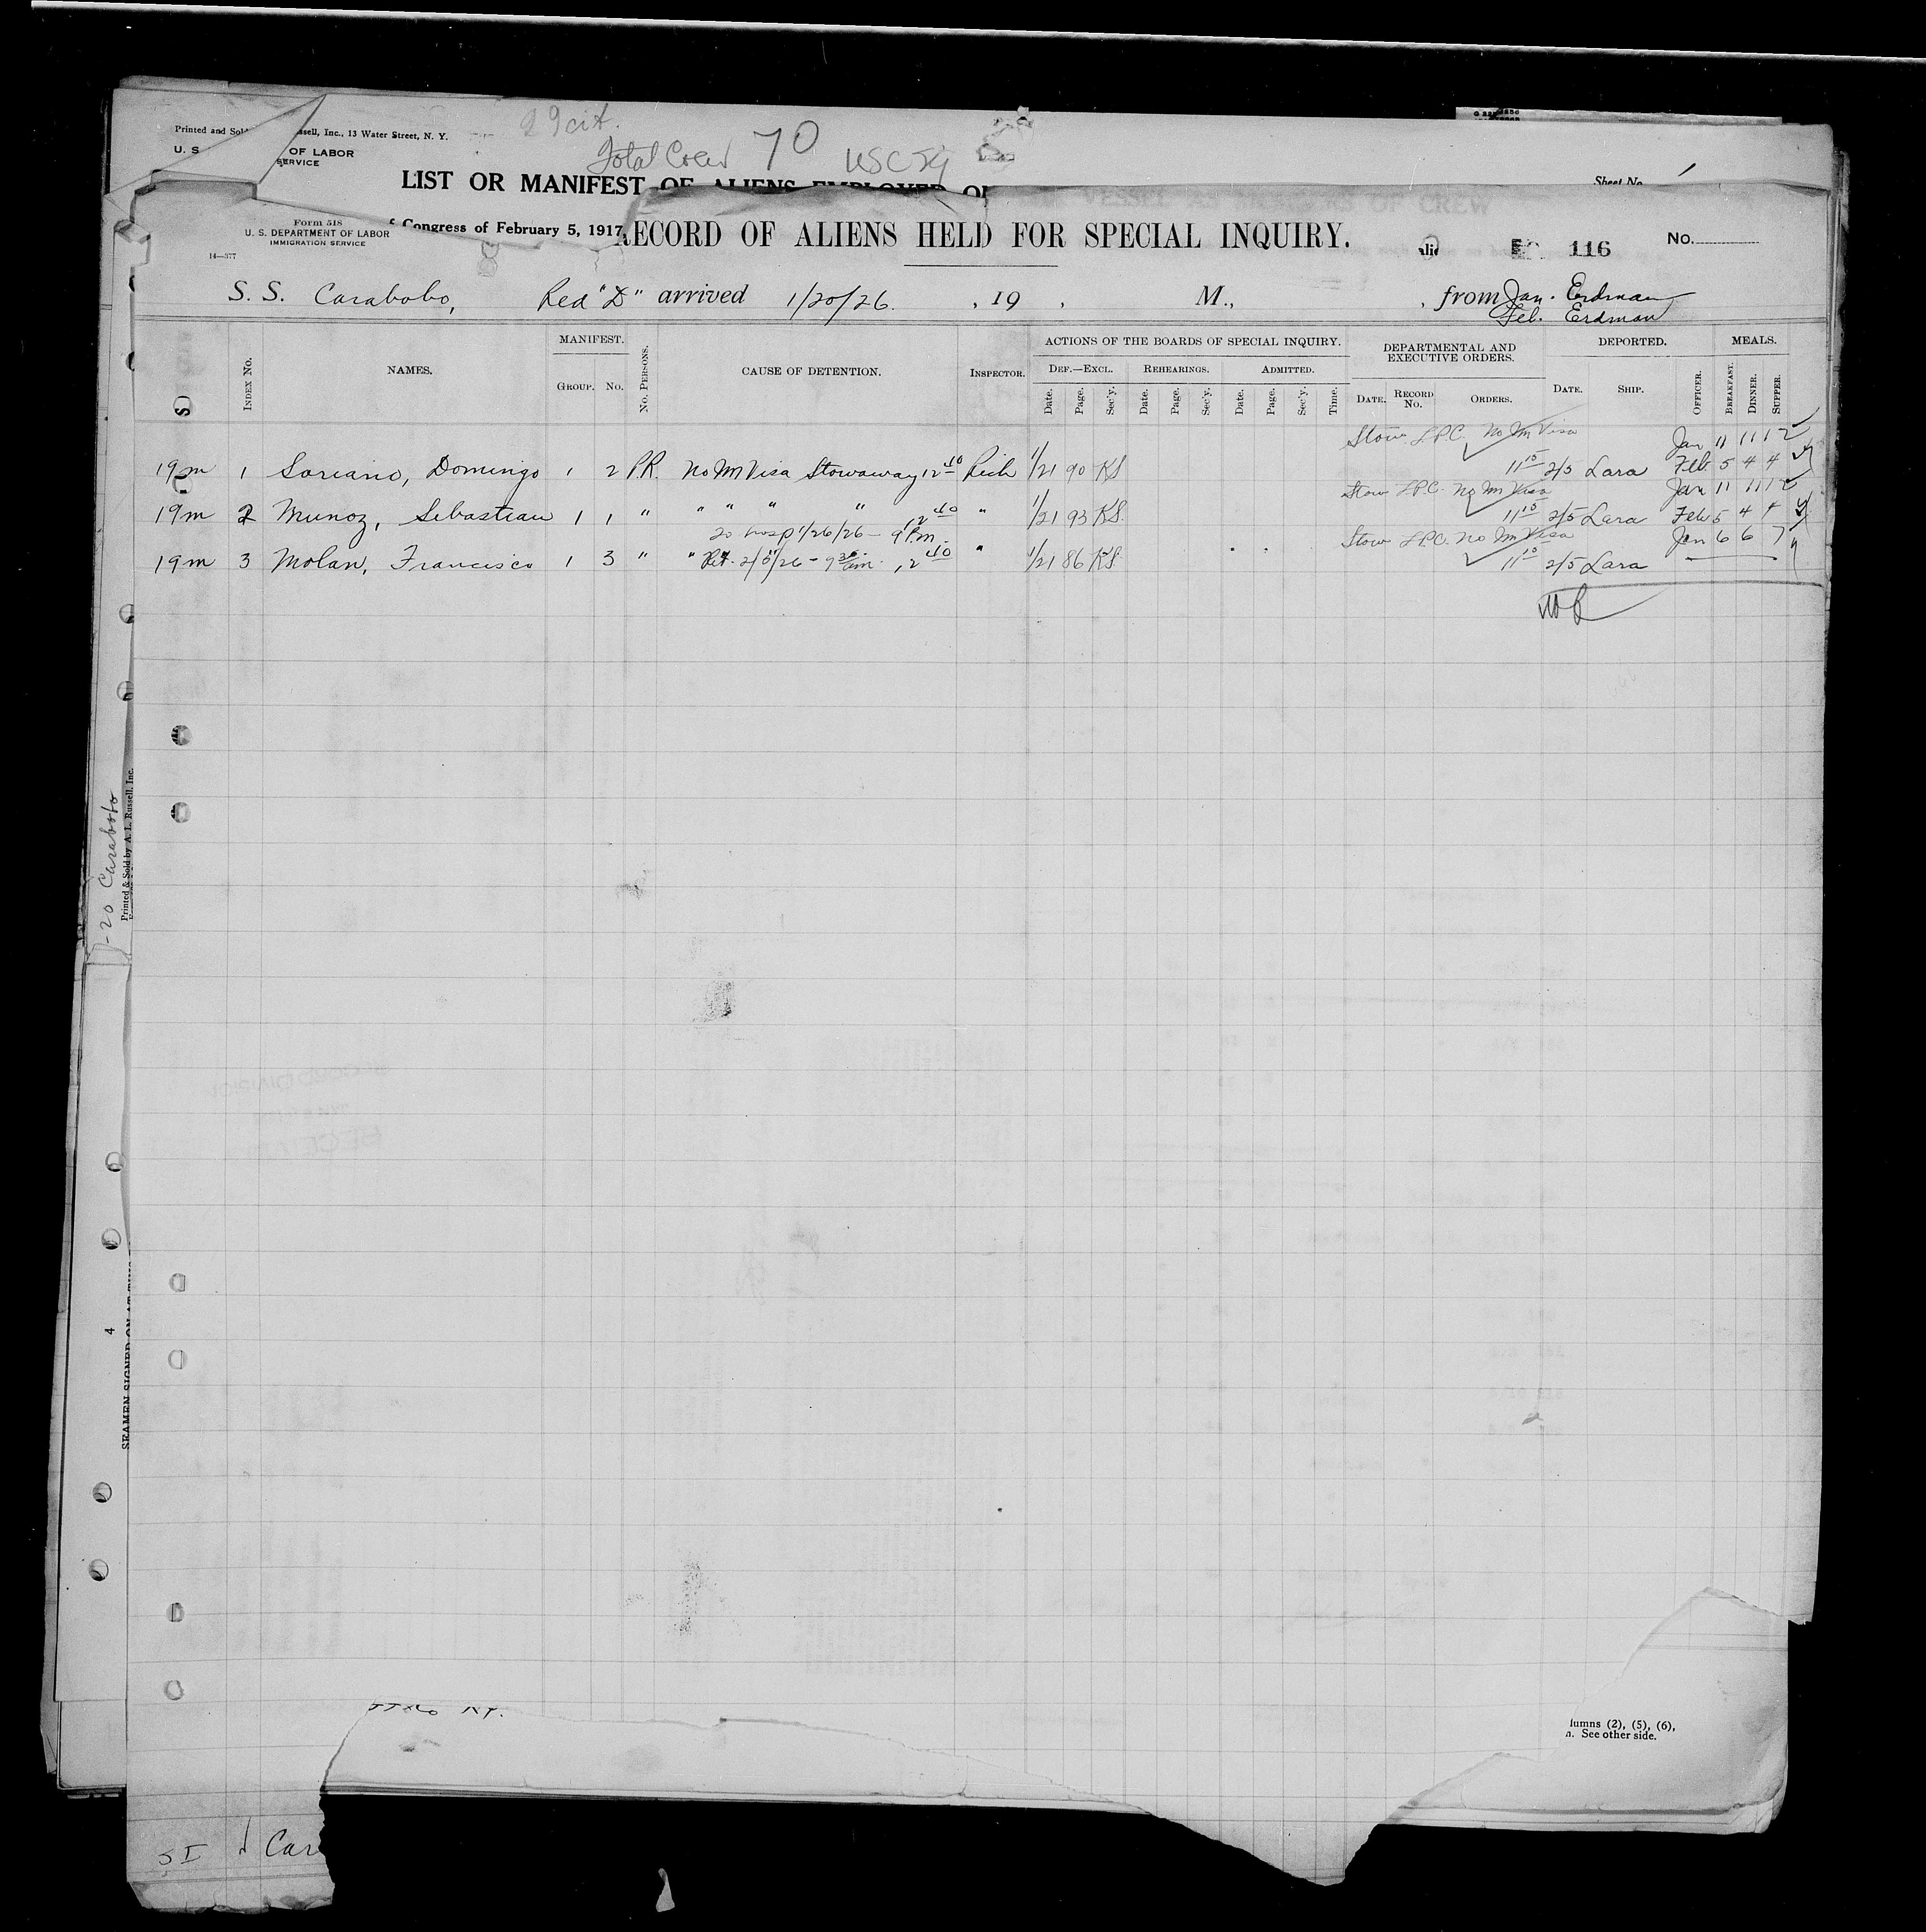 29 cit.
Printed and Sol ssell, Inc., 13 Water Street, N. Y.
Total Crew 70
U. S OF LABOR
SERVICE
LIST OR MANIFEST OF ALIENS EMPLOYED O
Sheet No.
VESSEL AS MEMBERS OF CREW
Form 518
U. S. DEPARTMENT OF LABOR
IMMIGRATION SERVICE
14—377
Congress of February 5, 1917,
RECORD OF ALIENS HELD FOR SPECIAL INQUIRY.
116
No.
S. S. Carabobo, Red "D" arrived 1/20/26. , 19 , M., , from Jan. Erdman
Feb. Erdman
INDEX No. NAMES. MANIFEST. GROUP. No. No. PERSONS. CAUSE OF DETENTION. INSPECTOR.
ACTIONS OF THE BOARDS OF SPECIAL INQUIRY.
DEF.—EXCL. REHEARINGS. ADMITTED.
Date. Page. Sec'y. Date. Page. Sec'y. Date. Page. Sec'y. Time.
DEPARTMENTAL AND EXECUTIVE ORDERS.
DATE. RECORD No. ORDERS.
DEPORTED.
DATE. SHIP. OFFICER.
MEALS.
BREAKFAST. DINNER. SUPPER.
Stow. LPC. No Im Visa Jan 11 11 12
19m 1 Soriano, Domingo 1 2 P.R. No Im Visa Stowaway 12 40 Rich 1/21 90 KS 11 15 2/5 Lara Feb 5 4 4
Stow LPC. No Im Visa Jan 11 11 12
19m 2 Munoz, Sebastian 1 1 " " " " " 12 40 " 1/21 93 KS. 11 15 2/5 Lara Feb 5 4 4
To hosp 1/26/26 - 9 P.m. Stow LPC. No Im Visa Jan 6 6 7
19m 3 Molan, Francisco 1 3 " " Ret. 2/5/26 - 9 30 am. 12 40 " 1/21 86 KS. 11 15 2/5 Lara
-20 Carabobo
Printed & Sold by A. L. Russell, Inc.
4
SEAMEN SIGNED ON AT
lumns (2), (5), (6),
n. See other side.
SI Car